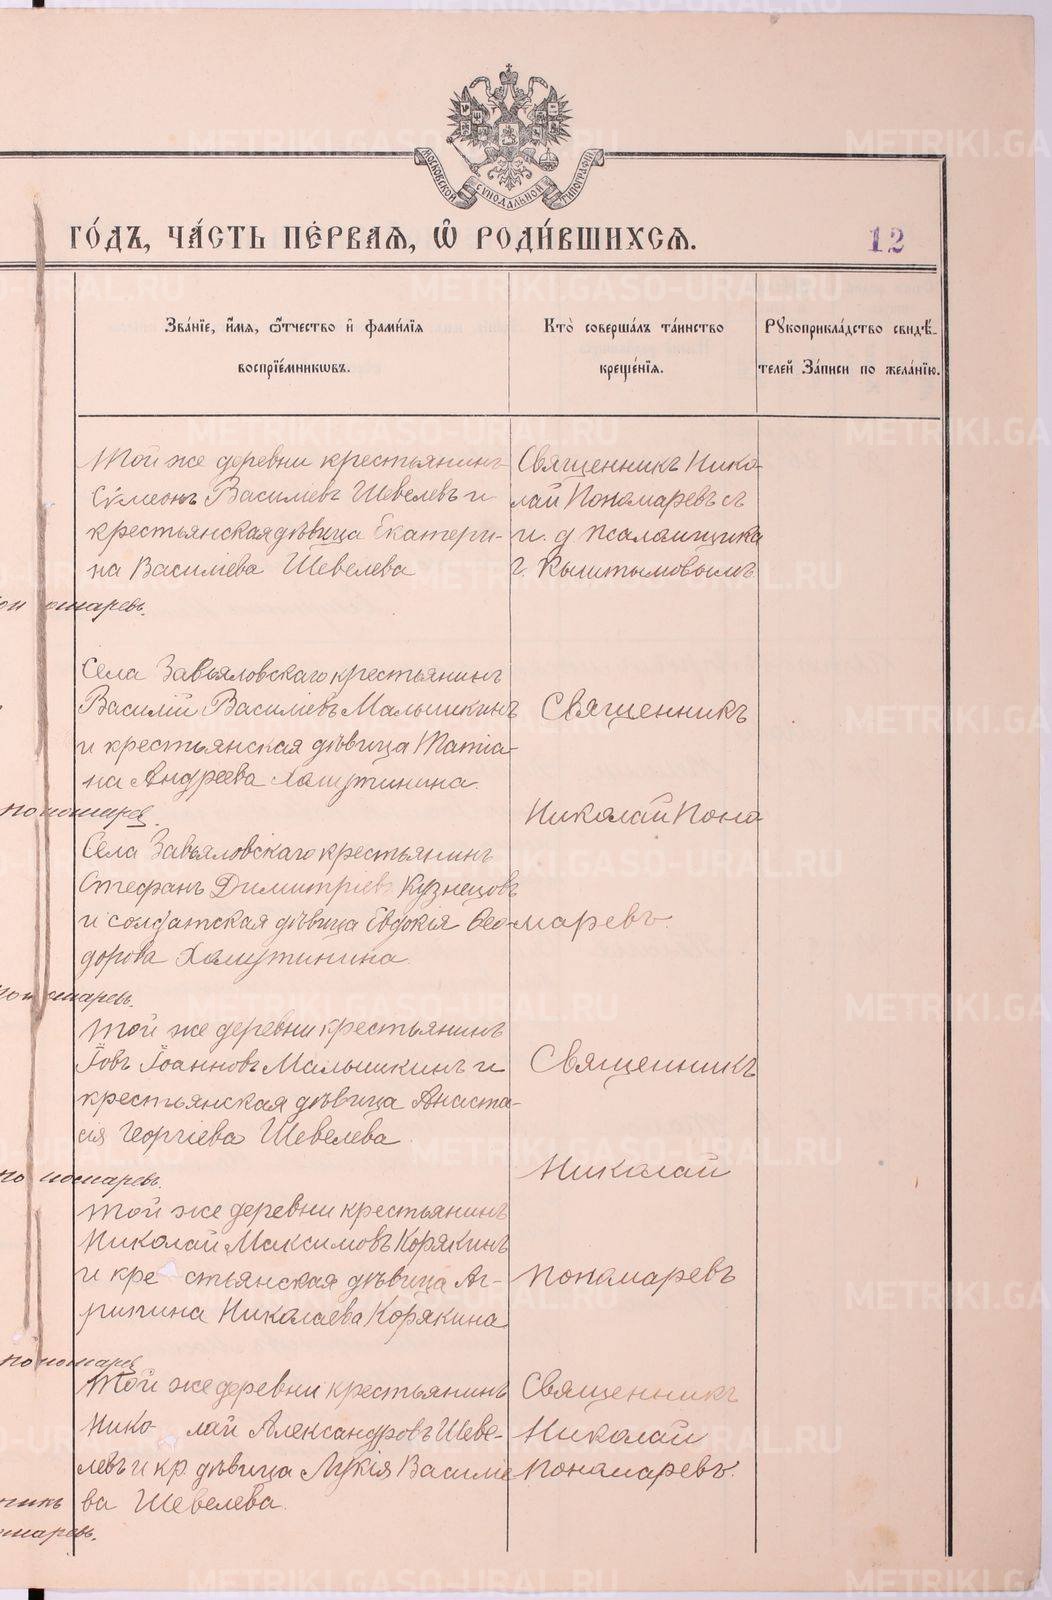 МОСКОВСКОЙ СѴНОДАЛЬНОЙ ТИПОГРАФІИ
ГО́ДЪ, ЧА́СТЬ ПЕ́РВАЯ, Ѡ҆ РОДИ́ВШИХСЯ.
12
Зва́нїе, и҆́мя, ѻ҆́тчество и҆ фами́лїя
воспрїе́мникωвъ.
Кто̀ соверша́лъ та́инство
креще́нїя.
Рꙋкоприкла́дство свидѣ́-
телей За́писи по жела́нїю.
Той же деревни крестьянинъ
Сѵмеонъ Василіевъ Шевелевъ и
крестьянская дѣвица Екатери-
на Василіева Шевелева
Священникъ Нико-
лай Пономаревъ съ
и. д псаломщика
г. Кыштымовымъ
Села Завьяловскаго крестьянинъ
Василій Василіевъ Малышкинъ
и крестьянская дѣвица Татіа-
на Андреева Халитинина.
Священникъ
Николай Поно
Села Завьяловскаго крестьянинъ
Стефанъ Димитріевъ Кузнецовъ
и солдатская дѣвица Евдокія Ѳео-
дорова Халитинина
маревъ.
Той же деревни крестьянинъ
Іовъ Іоанновъ Малышкинъ и
крестьянская дѣвица Анаста-
сія Георгіева Шевелева
Священникъ
Николай
Той же деревни крестьянинъ
Николай Максимовъ Корякинъ
и кре стьянская дѣвица Аг-
рипина Николаева Корякина
Пономаревъ
Той же деревни крестьянинъ
Нико- лай Александровъ Шеве-
левъ и кр. дѣвица Лукія Василіе
ва Шевелева.
Священникъ
Николай
Пономаревъ.